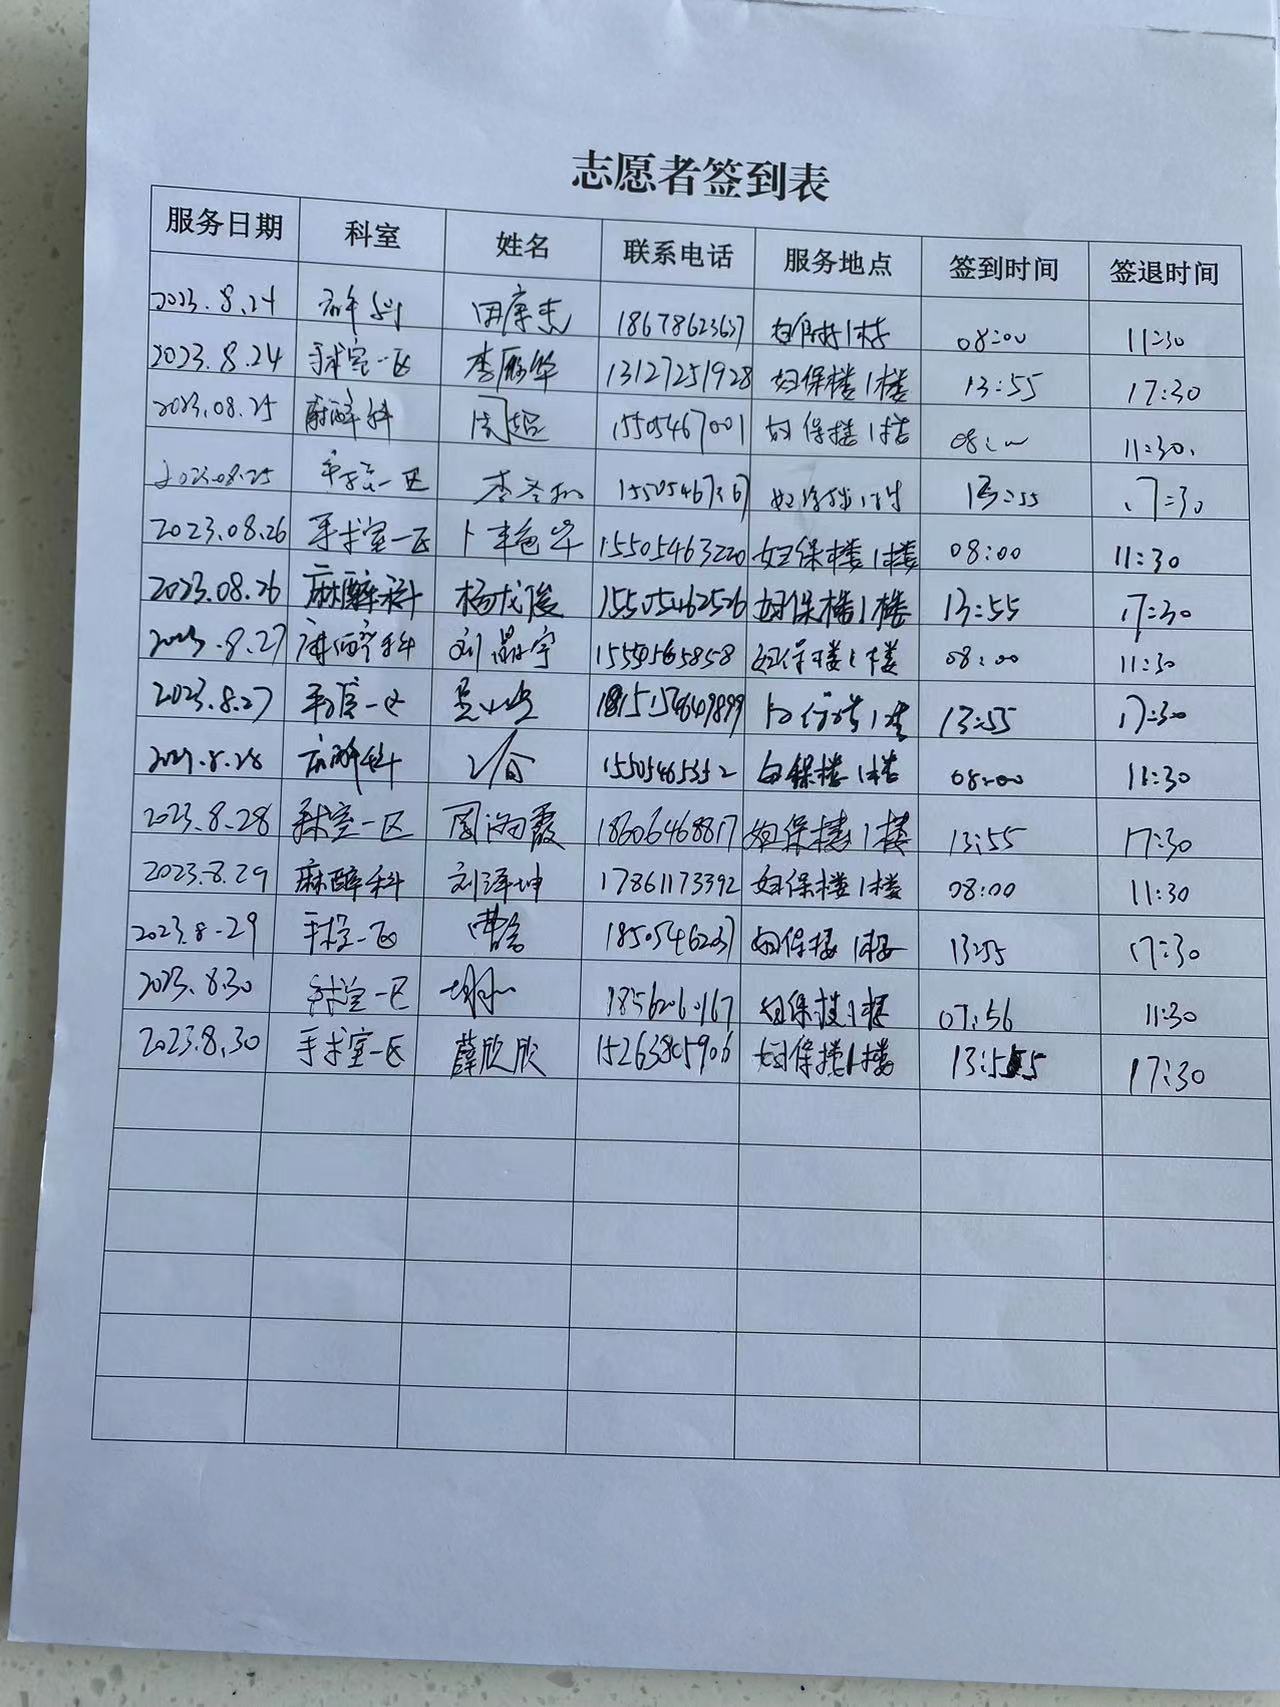 志愿者签到表
服务日期 科室 姓名 联系电话 服务地点 签到时间 签退时间
2023.8.24 18678623637 08:00 11:30
2023.8.24 手术室一区 13127251928 妇保楼1楼 13:55 17:30
2023.08.25 麻醉科 周超 15505467001 妇保楼1楼 11:30
2023.08.25 手术室一区 13:55 17:30
2023.08.26 手术室一区 15505463220 妇保楼1楼 08:00 11:30
2023.08.26 麻醉科 杨成俊 15505462526 妇保楼1楼 13:55 17:30
2023.8.27 麻醉科 刘晶宇 妇保楼1楼 08:00 11:30
2023.8.27 手术室一区 13:55 17:30
麻醉科 15505465352 妇保楼1楼 08:00 11:30
2023.8.28 手术室一区 18606468817 妇保楼1楼 13:55 17:30
2023.8.29 麻醉科 刘泽坤 17861173392 妇保楼1楼 08:00 11:30
2023.8.29 手术室一区 曹 妇保楼1楼 13:55 17:30
2023.8.30 手术室一区 18562060167 妇保楼1楼 07:56 11:30
2023.8.30 手术室一区 薛欣欣 15263805906 妇保楼1楼 13:55 17:30